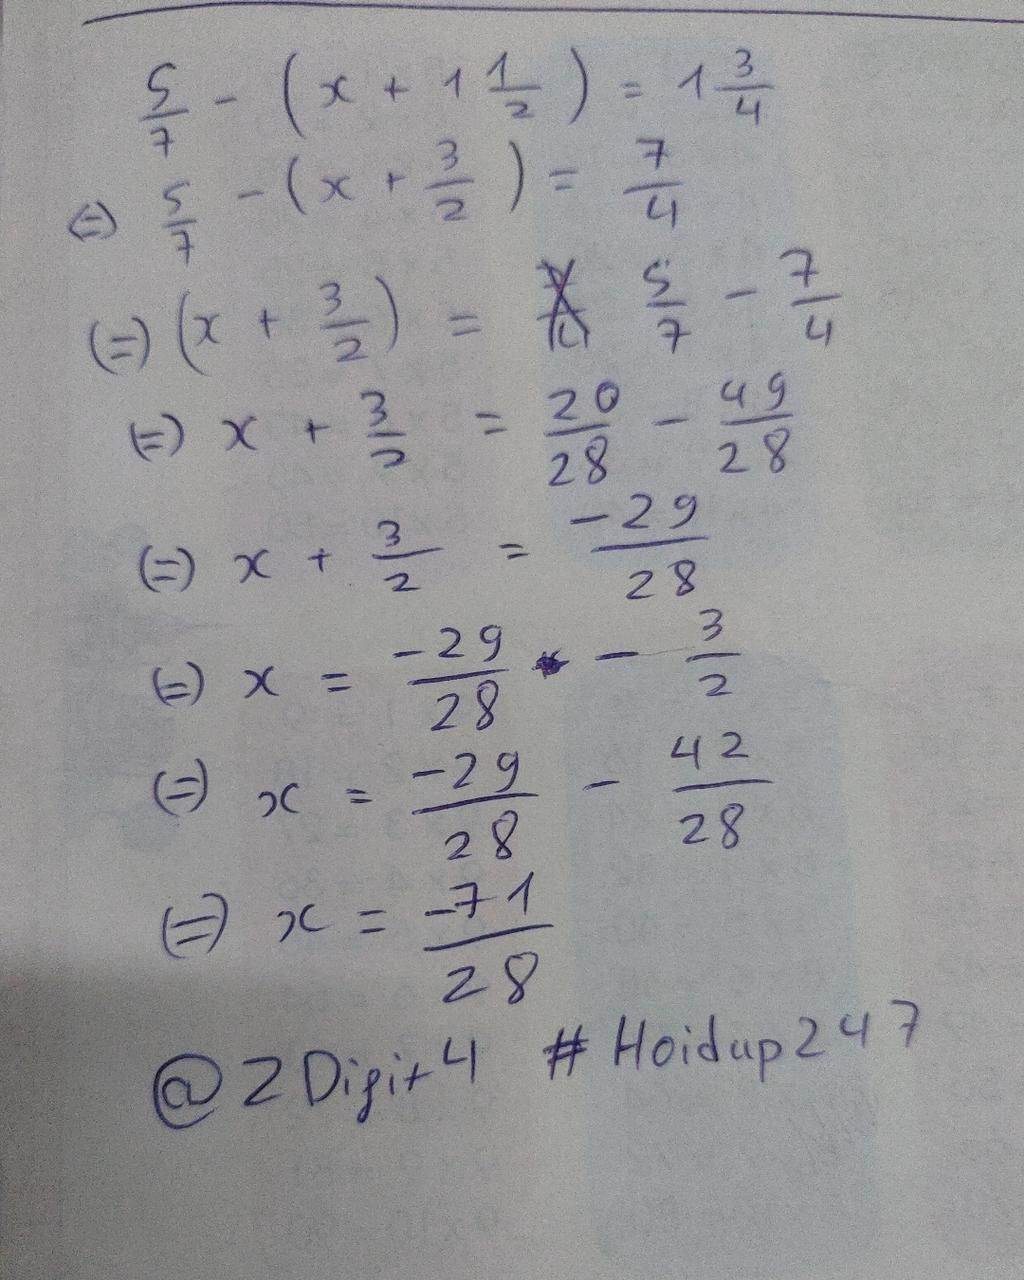 5/7 - (x + 1 1/2) = 1 3/4
(=) 5/7 - (x + 3/2) = 7/4
(=) (x + 3/2) = 5/7 - 7/4
(=) x + 3/2 = 20/28 - 49/28
(=) x + 3/2 = -29/28
(=) x = -29/28 - 3/2
(=) x = -29/28 - 42/28
(=) x = -71/28
@ZDigit4 #Hoidup247